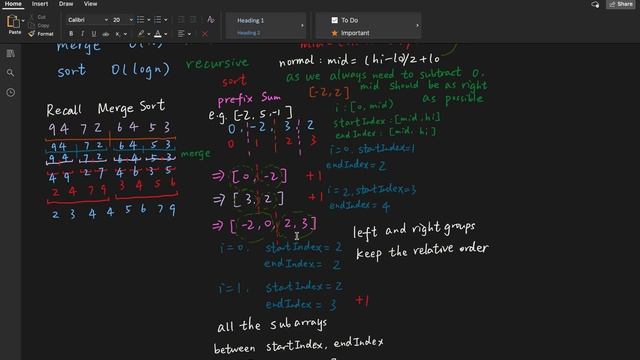 Recall
Layout
Acrobat
Cut
Copy
Paste
Format
Calibri Light
20
B I U
Heading 1
Heading 2
To Do
Important
merge
sort O(logn)
recursive
sort
prefix Sum
e.g. [-2, 5, -1]
0, -2, 3, 2
0 1 2 3
normal: mid = (hi-lo)/2 + lo
as we always need to subtract 0.
[-2,2] mid should be as right
as possible
i : [0, mid)
startIndex : [mid, hi]
endIndex : [mid, hi]
Recall Merge Sort
94 72 64 53
94 72 64 53
94 72 64 53
49 27 46 35
2 4 7 9 3 4 5 6
2 3 4 4 5 6 7 9
merge
⇒ [ 0, -2] +1
⇒ [ 3, 2 ] +1
⇒ [ -2, 0, 2, 3]
i=0. startIndex=1
endIndex = 2
i=2, startIndex=3
endIndex = 4
left and right groups
keep the relative order
i = 0. startIndex = 2
endIndex = 2
i = 1. startIndex = 2
endIndex = 3 +1
all the subarrays
between startIndex, endIndex